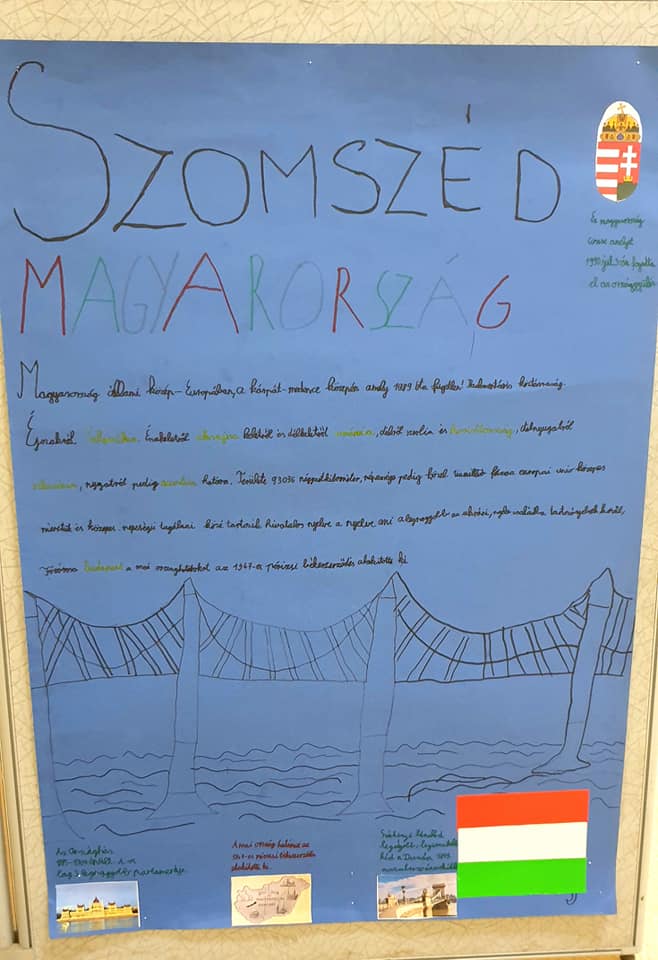 SZOMSZÉD
MAGYARORSZÁG
Ez magyarország
címere amelyet
1990 júl 3-án fogadta
el az országgyűlés
Magyarország állam Közép-Európában, a Kárpát-medence közepén. amely 1989 óta független! Parlamentáris köztársaság.
Északról Szlovákia, Északkeletről ukrajna keletről és délkeletről románia, délről szerbia és horvátország, délnyugatról
szlovénia, nyugatról pedig ausztria határa. Területe 93036 négyzetkilométer, népessége pedig közel európai unió közepes
méretű és közepes népességű tagállamai közé tartozik hivatalos nyelve a magyar, ami a legnagyobb az uráli, nyelvcsaládba tartozó
Fővárosa budapest a mai országhatárokat az 1947-es párizsi békeszerződés alakította ki
Az Országház
1885-1904 között
legnagyobb parlamentje
A mai ország határait az
1947-es párizsi békeszerződés
alakította ki.
Széchenyi lánchíd a
legrégibb, legismertebb
híd a Dunán 1849